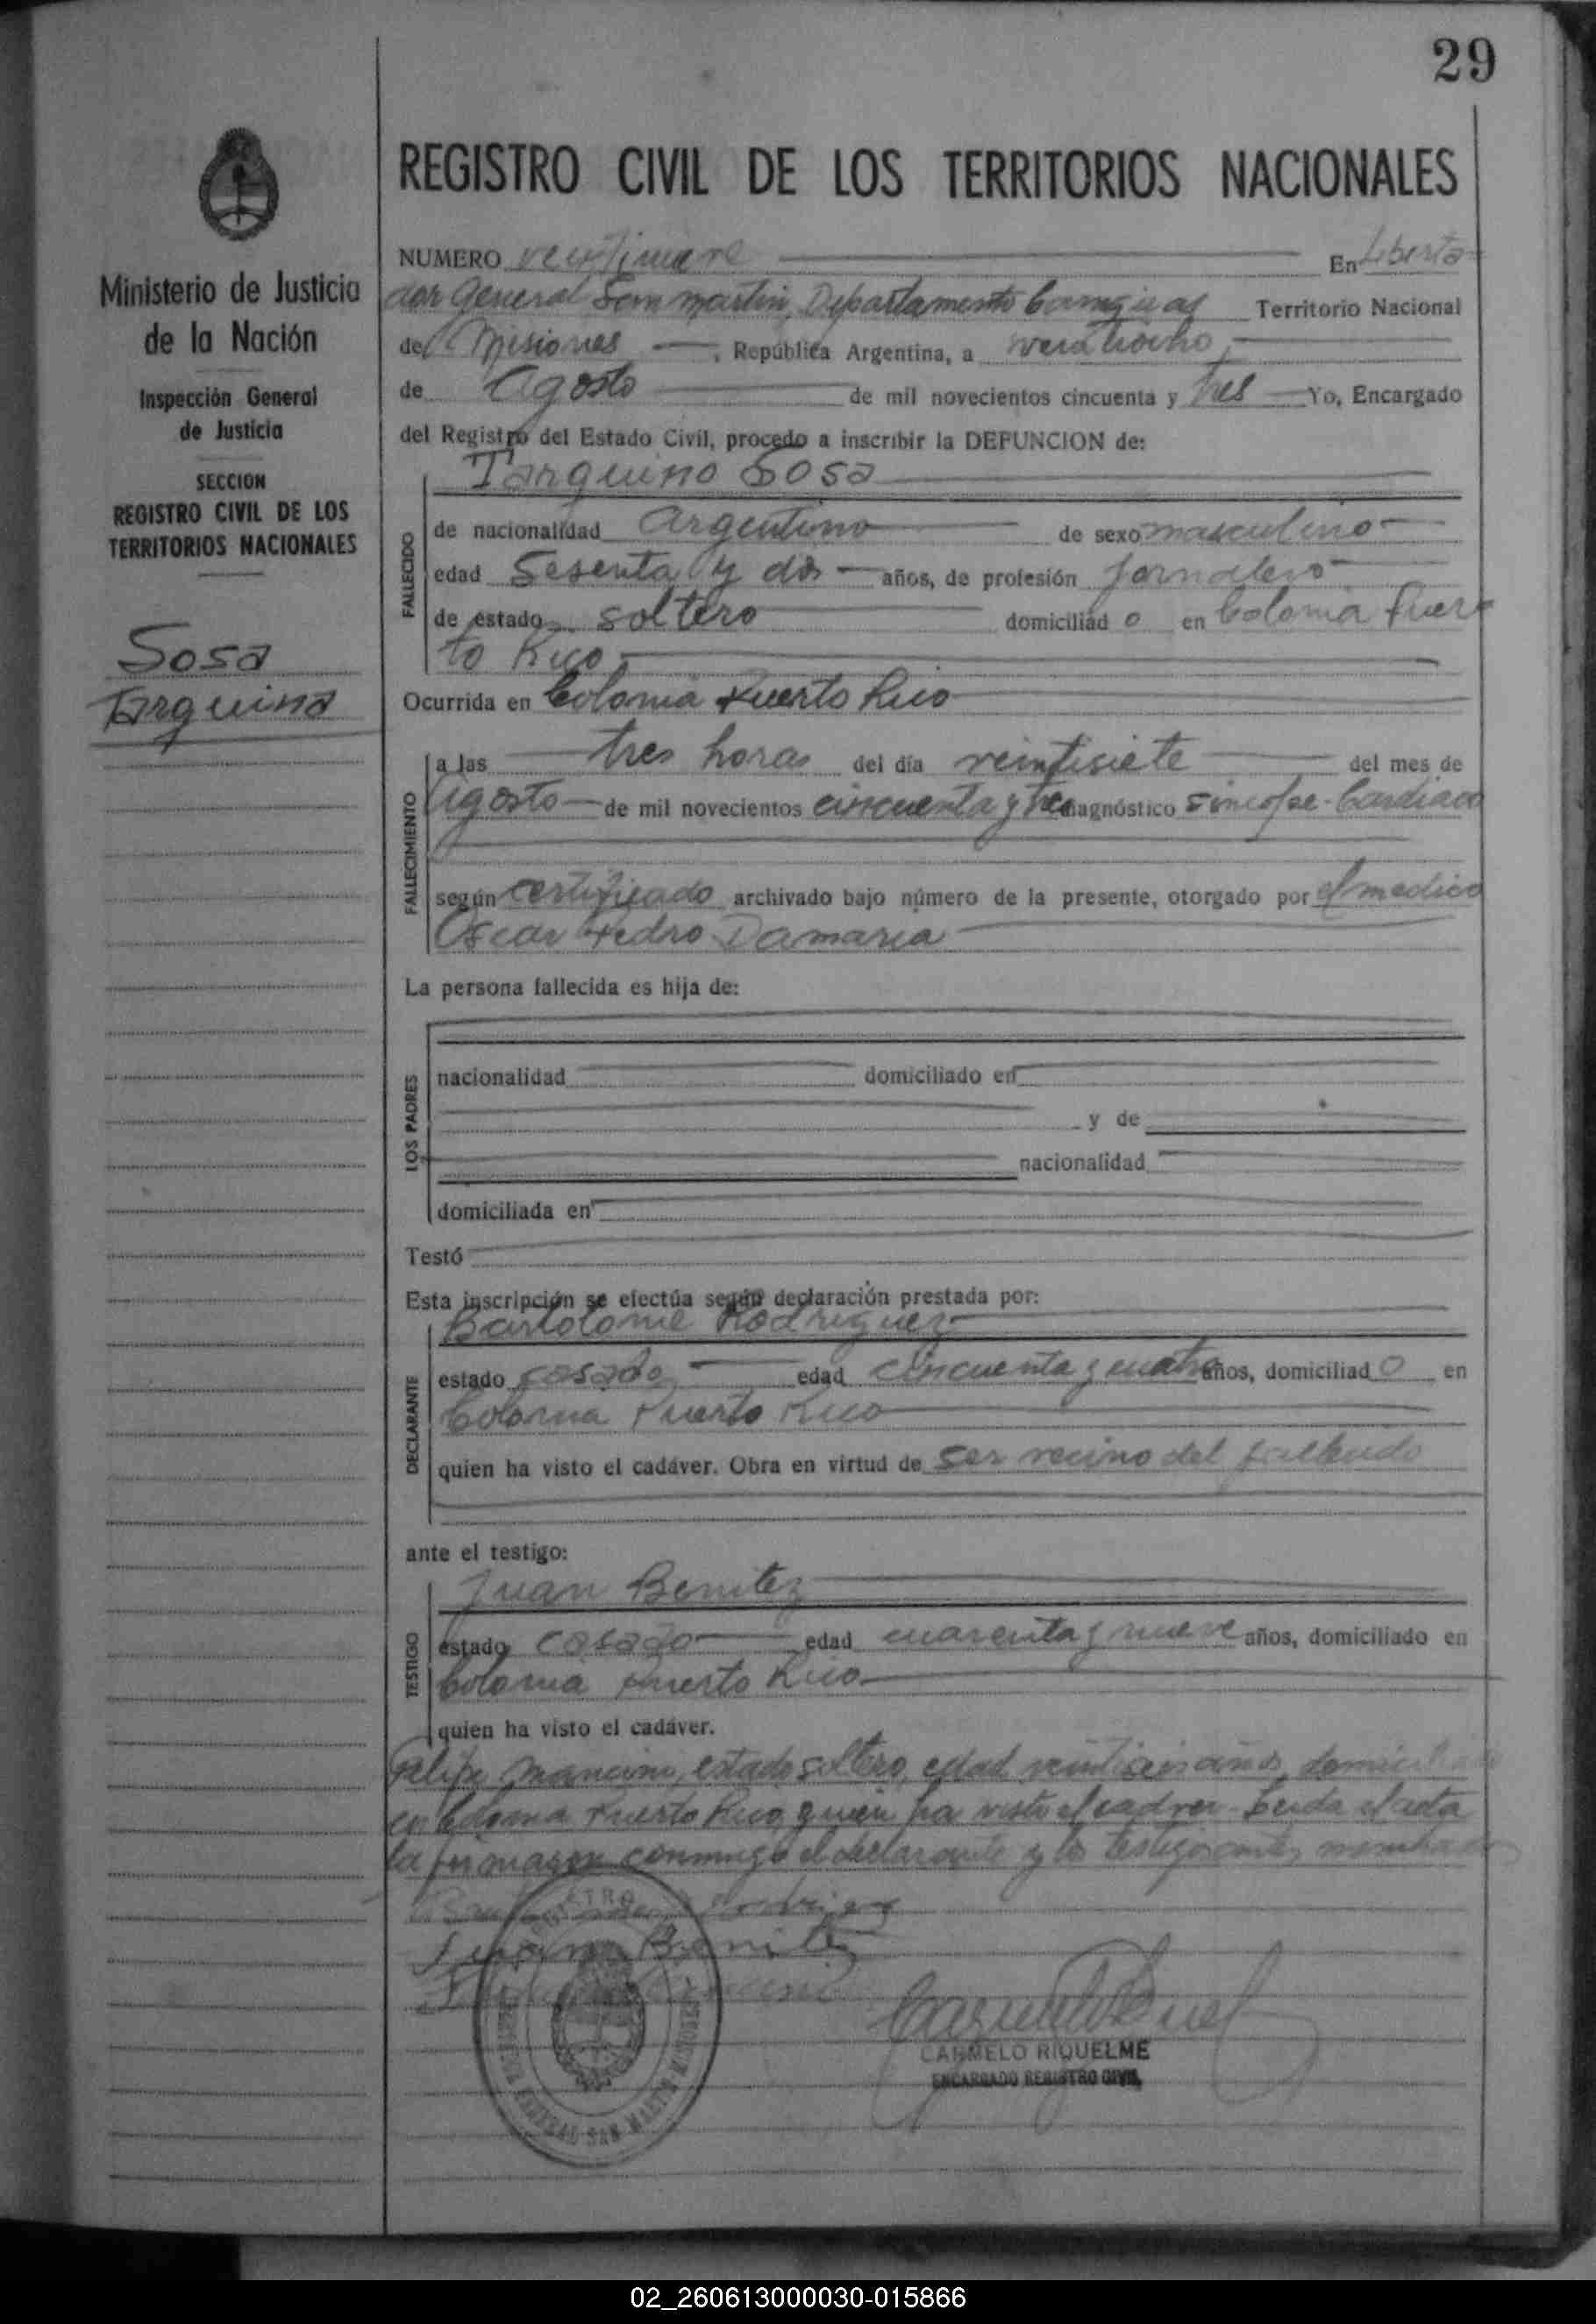 29
REGISTRO CIVIL DE LOS TERRITORIOS NACIONALES
Ministerio de Justicia
de la Nación
Inspección General
de Justicia
SECCION
REGISTRO CIVIL DE LOS
TERRITORIOS NACIONALES
Sosa
Tarquino
NUMERO veintinueve En Liberta-
dor General San martin, Departamento Cainguas Territorio Nacional
de Misiones, República Argentina, a veintiocho,
de Agosto de mil novecientos cincuenta y tres Yo, Encargado
del Registro del Estado Civil, procedo a inscribir la DEFUNCION de:
Tarquino Sosa
FALLECIDO
de nacionalidad Argentino de sexo masculino
edad Sesenta y dos años, de profesión Jornalero
de estado soltero domiciliad o en Colonia Puer
to Rico
Ocurrida en Colonia Puerto Rico
FALLECIMIENTO
a las tres horas del día veintisiete del mes de
Agosto de mil novecientos cincuenta y tres diagnóstico Sincope-Cardiaco
según certificado archivado bajo número de la presente, otorgado por el medico
Oscar Pedro Damaria
La persona fallecida es hija de:
LOS PADRES
nacionalidad domiciliado en
y de
nacionalidad
domiciliada en
Testó
Esta inscripción se efectúa según declaración prestada por:
Bartolome Rodriguez
DECLARANTE
estado casado edad cincuenta y cuatro años, domiciliad o en
Colonia Puerto Rico
quien ha visto el cadáver. Obra en virtud de ser vecino del fallecido
ante el testigo:
Juan Benitez
TESTIGO
estado casado edad cuarenta y nueve años, domiciliado en
Colonia Puerto Rico
quien ha visto el cadáver.
Felipe Mancini, estado soltero, edad veintiseis años, domiciliado
en Colonia Puerto Rico, quien ha visto el cadver- Leida el acta
la firmaron conmigo el declarante y los testigos antes nombrados
Juan Benitez
CARMELO RIQUELME
ENCARGADO REGISTRO CIVIL
GENERAL SAN MARTIN
02_260613000030-015866